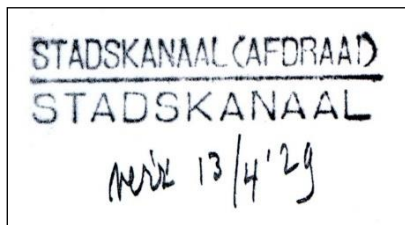 STADSKANAAL (AFDRAAI)
STADSKANAAL
13/4'29